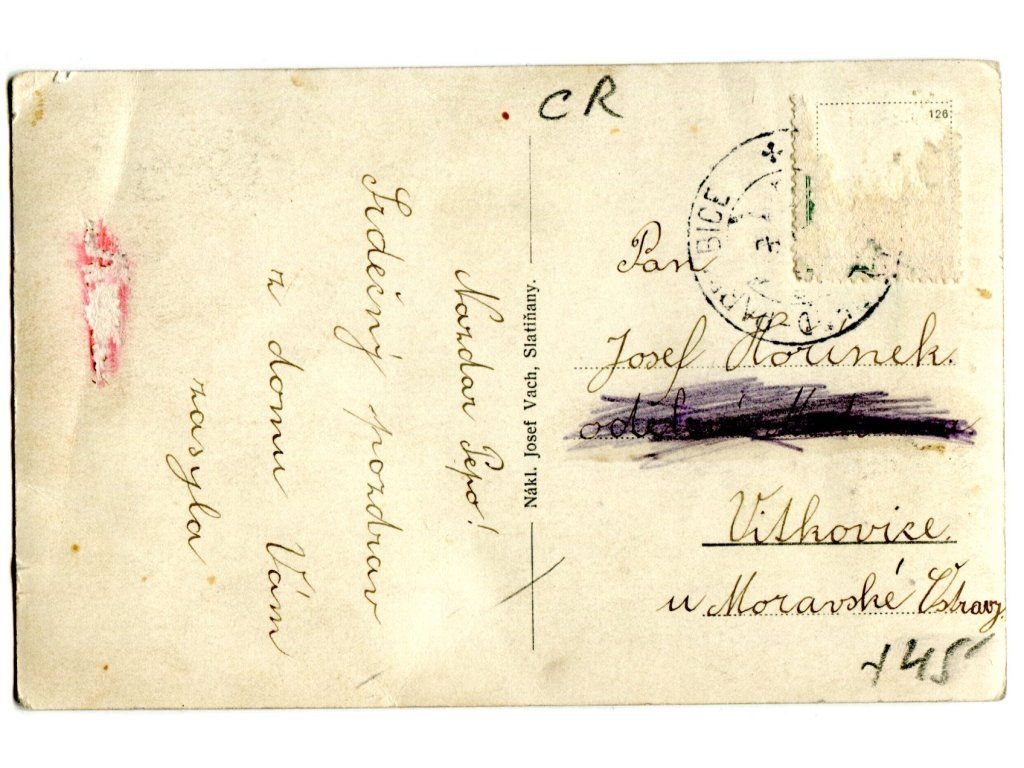 CR
126
BICE
Nazdar Pepo!
Srdečný pozdrav
z domu Vám
zasyla
Nákl. Josef Vach, Slatiňany.
Pan
Josef Hořinek.
Vitkovice.
u Moravské Ostravy
45